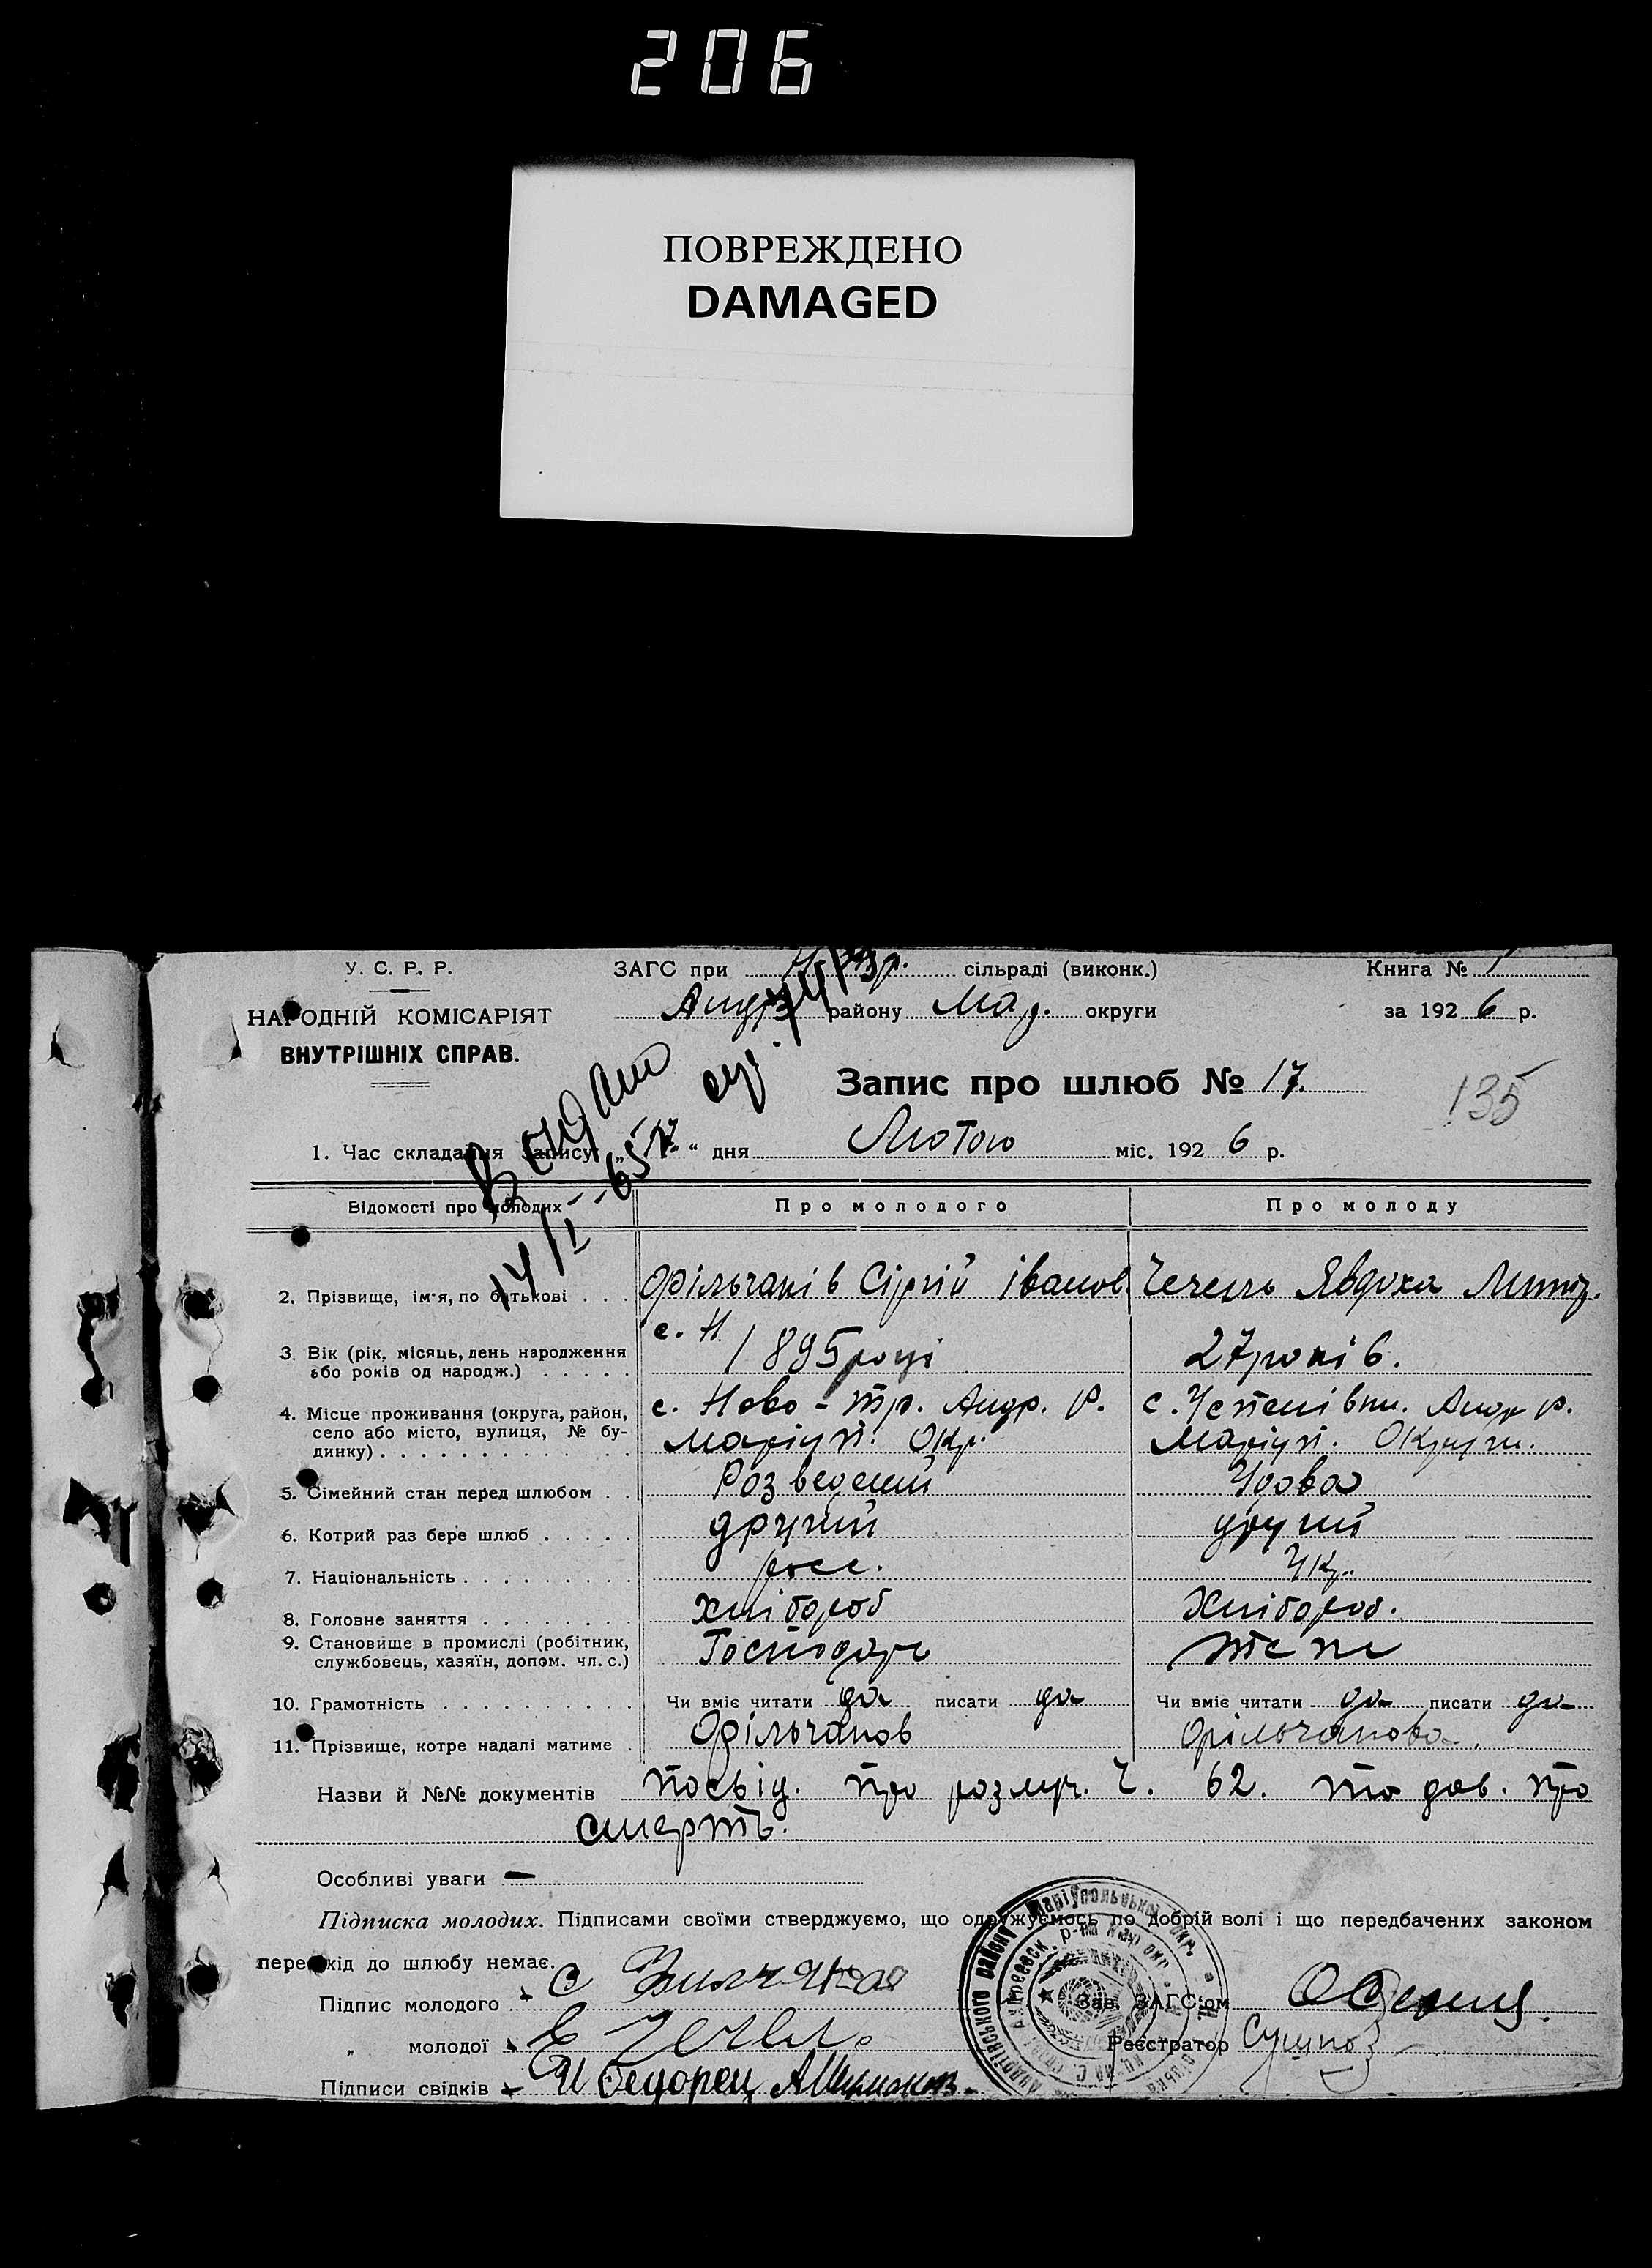 206
ПОВРЕЖДЕНО
DAMAGED
У. С. Р. Р.
НАРОДНІЙ КОМІСАРІЯТ
ВНУТРІШНІХ СПРАВ.
ЗАГС при сільраді (виконк.)
Андр. району Мар. округи
Книга № 1
за 1926 р.
Запис про шлюб № 17.
135
1. Час складання запису: „17“ дня Лютого міс. 1926 р.
14/I-65
Відомості про молодих Про молодого Про молоду
2. Прізвище, ім'я, по батькові . . . Фільчаків Сіргій Іванов. Чечель Явдоха
3. Вік (рік, місяць, день народження або років од народж.) . . . . . с. Н 1895 році 27 років.
4. Місце проживання (округа, район, село або місто, вулиця, № будинку) . . . . . . . . . . . . с. Ново-тр. Андр. р. Маріуп. Окр. с. Андр р. Маріуп. Округи.
5. Сімейний стан перед шлюбом . . Розведений Удова
6. Котрий раз бере шлюб . . . . . другий другий
7. Національність . . . . . . . . . росс. Укр.
8. Головне заняття . . . . . . . . хлібороб Хлібороб.
9. Становище в промислі (робітник, службовець, хазяїн, допом. чл. с.) Господарь
10. Грамотність . . . . . . . . . . Чи вміє читати да писати да Чи вміє читати да писати да
11. Прізвище, котре надалі матиме . Фільчаков Фільчакова.
Назви й №№ документів посвід. про розлуч. Ч. 62. та дов. про
смерть.
Особливі уваги —
Підписка молодих. Підписами своїми стверджуємо, що одружуємось по добрій волі і що передбачених законом
перешкід до шлюбу немає.
Підпис молодого С Зав. ЗАГС'ом
„ молодої Е Чечель Реєстратор
Підписи свідків И Федорец А